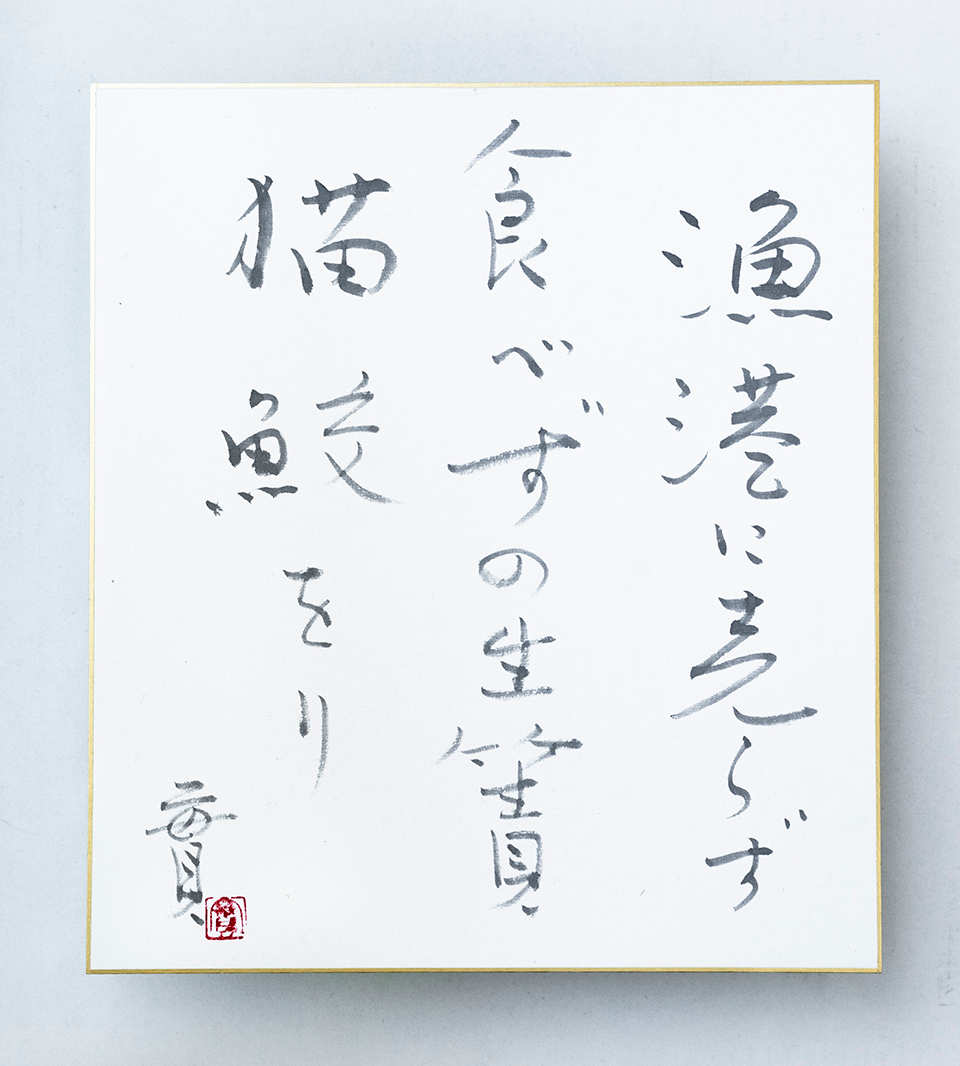 漁港に売らず
食べずの生簀
猫鮫をり
貫